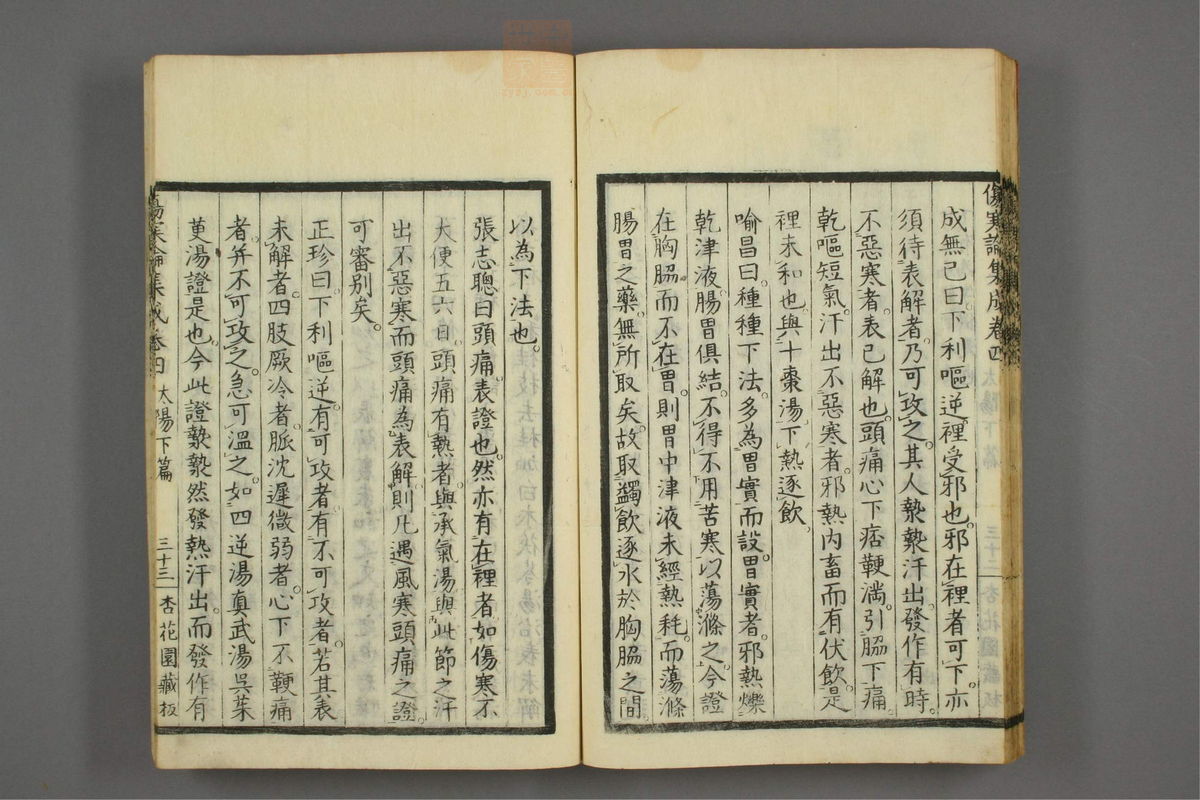 傷寒論集成卷四
成無已曰下利嘔逆裡受邪也邪在裡者可下亦
須待表解者乃可攻之其人漐漐汗出發作有時
不惡寒者表已解也頭痛心下痞鞕滿引脇下痛
乾嘔短氣汗出不惡寒者邪熱內畜而有伏飲是
裡未和也與十棗湯下熱逐飲
喻昌曰種種下法多為胃實而設胃實者邪熱爍
乾津液腸胃俱結不得不用苦寒以蕩滌之今證
在胸脇而不在胃則胃中津液未經熱耗而蕩滌
腸胃之藥無所取矣故取蠲飲逐水於胸脇之間
以為下法也
張志聰曰頭痛表證也然亦有在裡者如傷寒不
大便五六日頭痛有熱者與承氣湯與此節之汗
出不惡寒而頭痛為表解則凡遇風寒頭痛之證
可審別矣
正珍曰下利嘔逆有可攻者有不可攻者若其表
未解者四肢厥冷者脈沈遲微弱者心下不鞕痛
者并不可攻之急可溫之如四逆湯真武湯吳茱
萸湯證是也今此證漐漐然發熱汗出而發作有
傷寒論集成卷四 太陽下篇 三十三 杏花園藏板